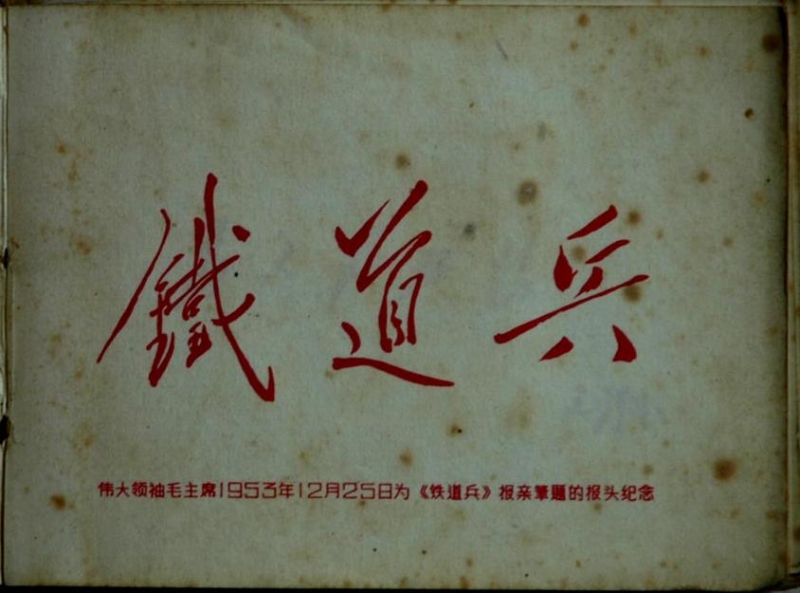 鐵道兵
伟大领袖毛主席1953年12月25日为《铁道兵》报亲筆题的报头纪念